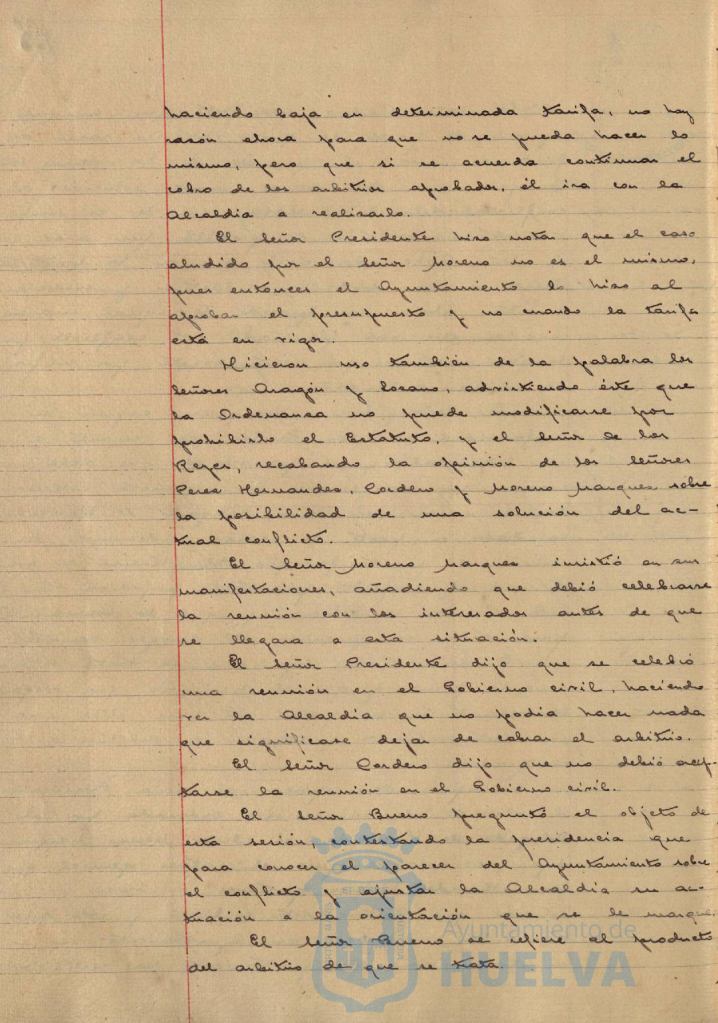 haciendo baja en determinada tarifa, no hay
razón ahora para que no se pueda hacer lo
mismo, pero que si se acuerda continuar el
cobro de los arbitrios aprobados, él irá con la
Alcaldia a realizarlo.
El Señor Presidente hizo notar que el caso
aludido por el Señor Moreno no es el mismo,
pues entonces el Ayuntamiento lo hizo al
aprobar el presupuesto y no cuando la tarifa
está en vigor.
Hicieron uso también de la palabra los
Señores Aragón y Lozano, advirtiendo éste que
la Ordenanza no puede modificarse por
prohibirlo el Estatuto, y el Señor de los
Reyes, recabando la opinión de los Señores
Perez Hernandez, Cordero y Moreno Marquez sobre
la posibilidad de una solución del ac-
tual conflicto.
El Señor Moreno Marquez insistió en sus
manifestaciones, añadiendo que debió celebrarse
la reunión con los interesados antes de que
se llegara a esta situación.
El Señor Presidente dijo que se celebró
una reunión en el Gobierno civil, haciendo
ver la Alcaldia que no podia hacer nada
que significase dejar de cobrar el arbitrio.
El Señor Cordero dijo que no debió acep-
tarse la reunión en el Gobierno civil.
El Señor Bueno preguntó el objeto de
esta sesión, contestando la presidencia que
para conocer el parecer del Ayuntamiento sobre
el conflicto y ajustar la Alcaldia su ac-
tuación a la orientación que se le marque.
El Señor Bueno se refiere al producto
del arbitrio de que se trata.
Ayuntamiento de
HUELVA